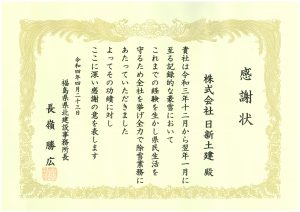 感謝状
株式会社日新土建 殿
貴社は令和三年十二月から翌年一月に
至る記録的な豪雪において
これまでの経験を生かし県民生活を
守るため全社を挙げ全力で除雪業務に
あたっていただきました
よってその功績に対し
ここに深い感謝の意を表します
令和四年四月二十二日
福島県県北建設事務所長
長嶺 勝広